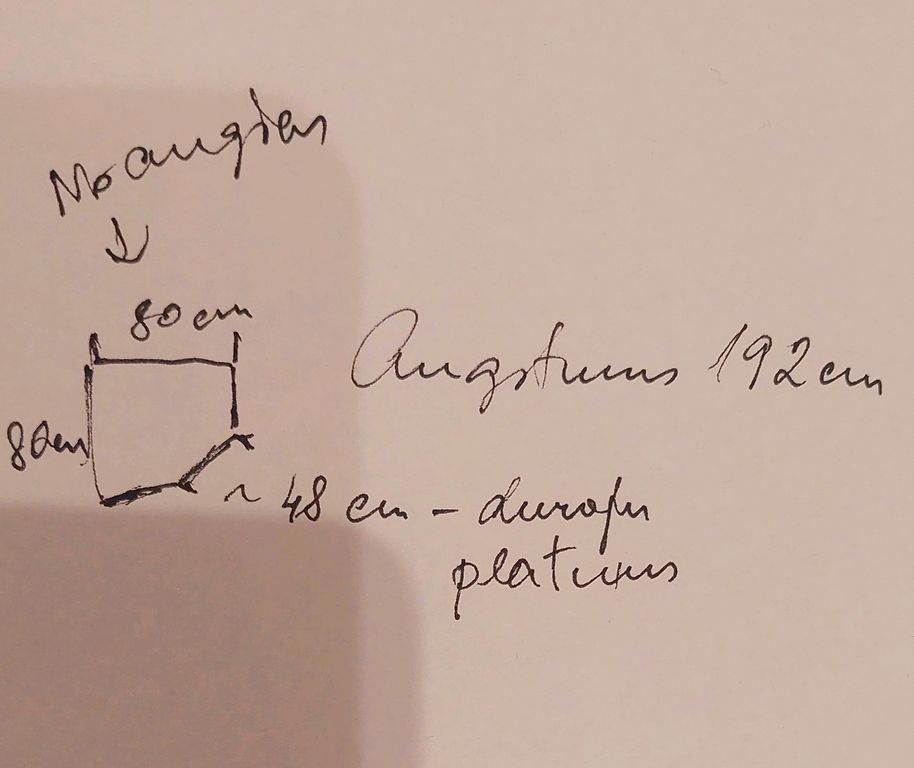 No augšas
80 cm
80cm
Augstums 192 cm
~ 48 cm - durvju
platums